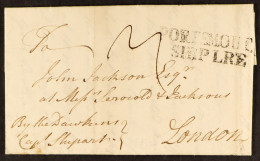 PORTSMOUTH
SHIP LRE
To
John Jackson Esqr.
at Messrs. Serocold & Jacksons
London
By the Dawkins
Capt. Shepard